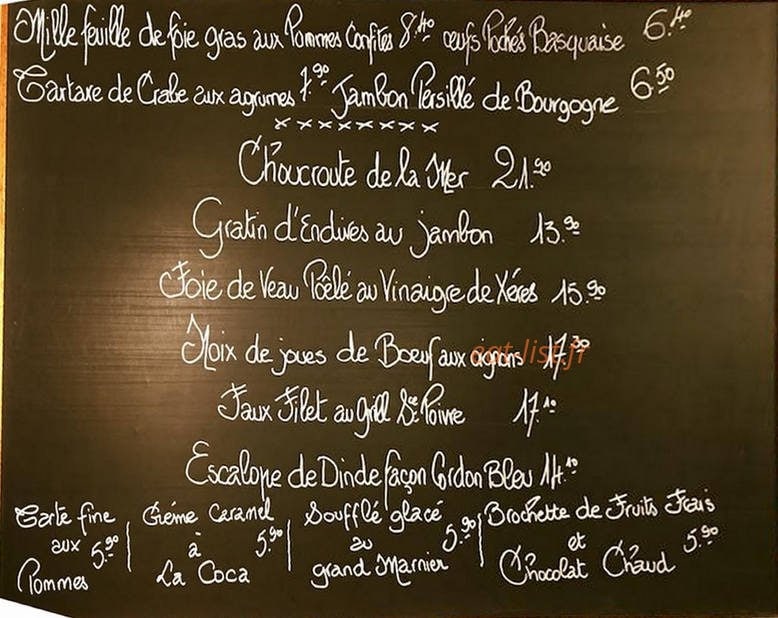 Mille feuille de foie gras aux Pommes Confites 8.40 œufs Pochés Basquaise 6.40
Tartare de Crabe aux agrumes 7.90 Jambon Persillé de Bourgogne 6.50
x x x x x x x x
Choucroute de la Mer 21.90
Gratin d'Endives au jambon 13.90
Foie de Veau Poêlé au Vinaigre de Xérès 15.90
Noix de joues de Boeuf aux oignons 17.30
eat-list.fr
Faux Filet au Grill Sce Poivre 17.10
Escalope de Dinde façon Cordon Bleu 14.10
Tarte fine
aux 5.90
Pommes
Crème Caramel
à 5.90
La Coca
Soufflé glacé
au 5.90
grand Marnier
Brochette de Fruits Frais
et 5.90
Chocolat Chaud